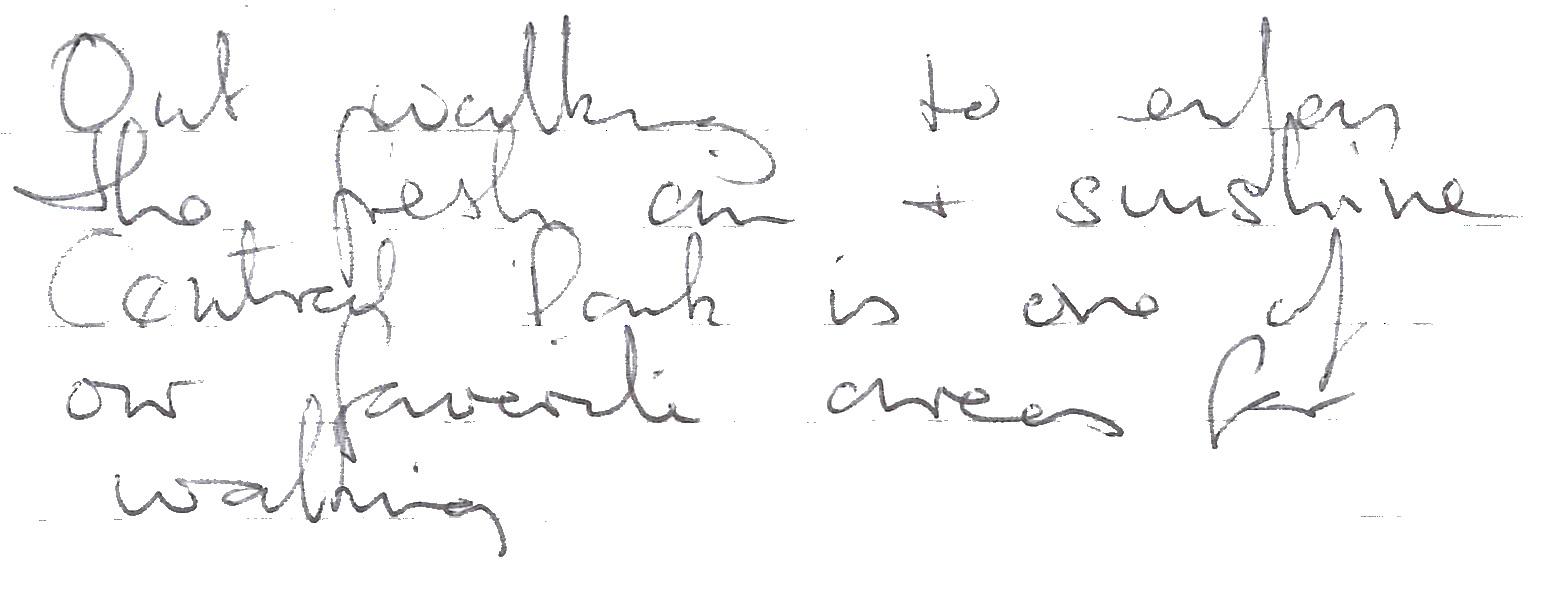 Out walking to enjoy
the fresh air + sunshine
Central Park is one of
our favorite areas for
walking